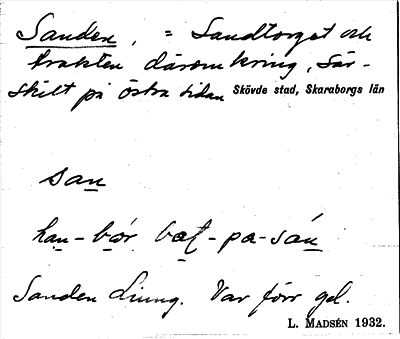 Sanden, = Sandtorget och
trakten däromkring, Sär-
skilt på östra sidan Skövde stad, Skaraborgs län
san
han-bor bæt-pa-sán
Sanden Ljung. Var förr gel.
L. MADSÉN 1932.